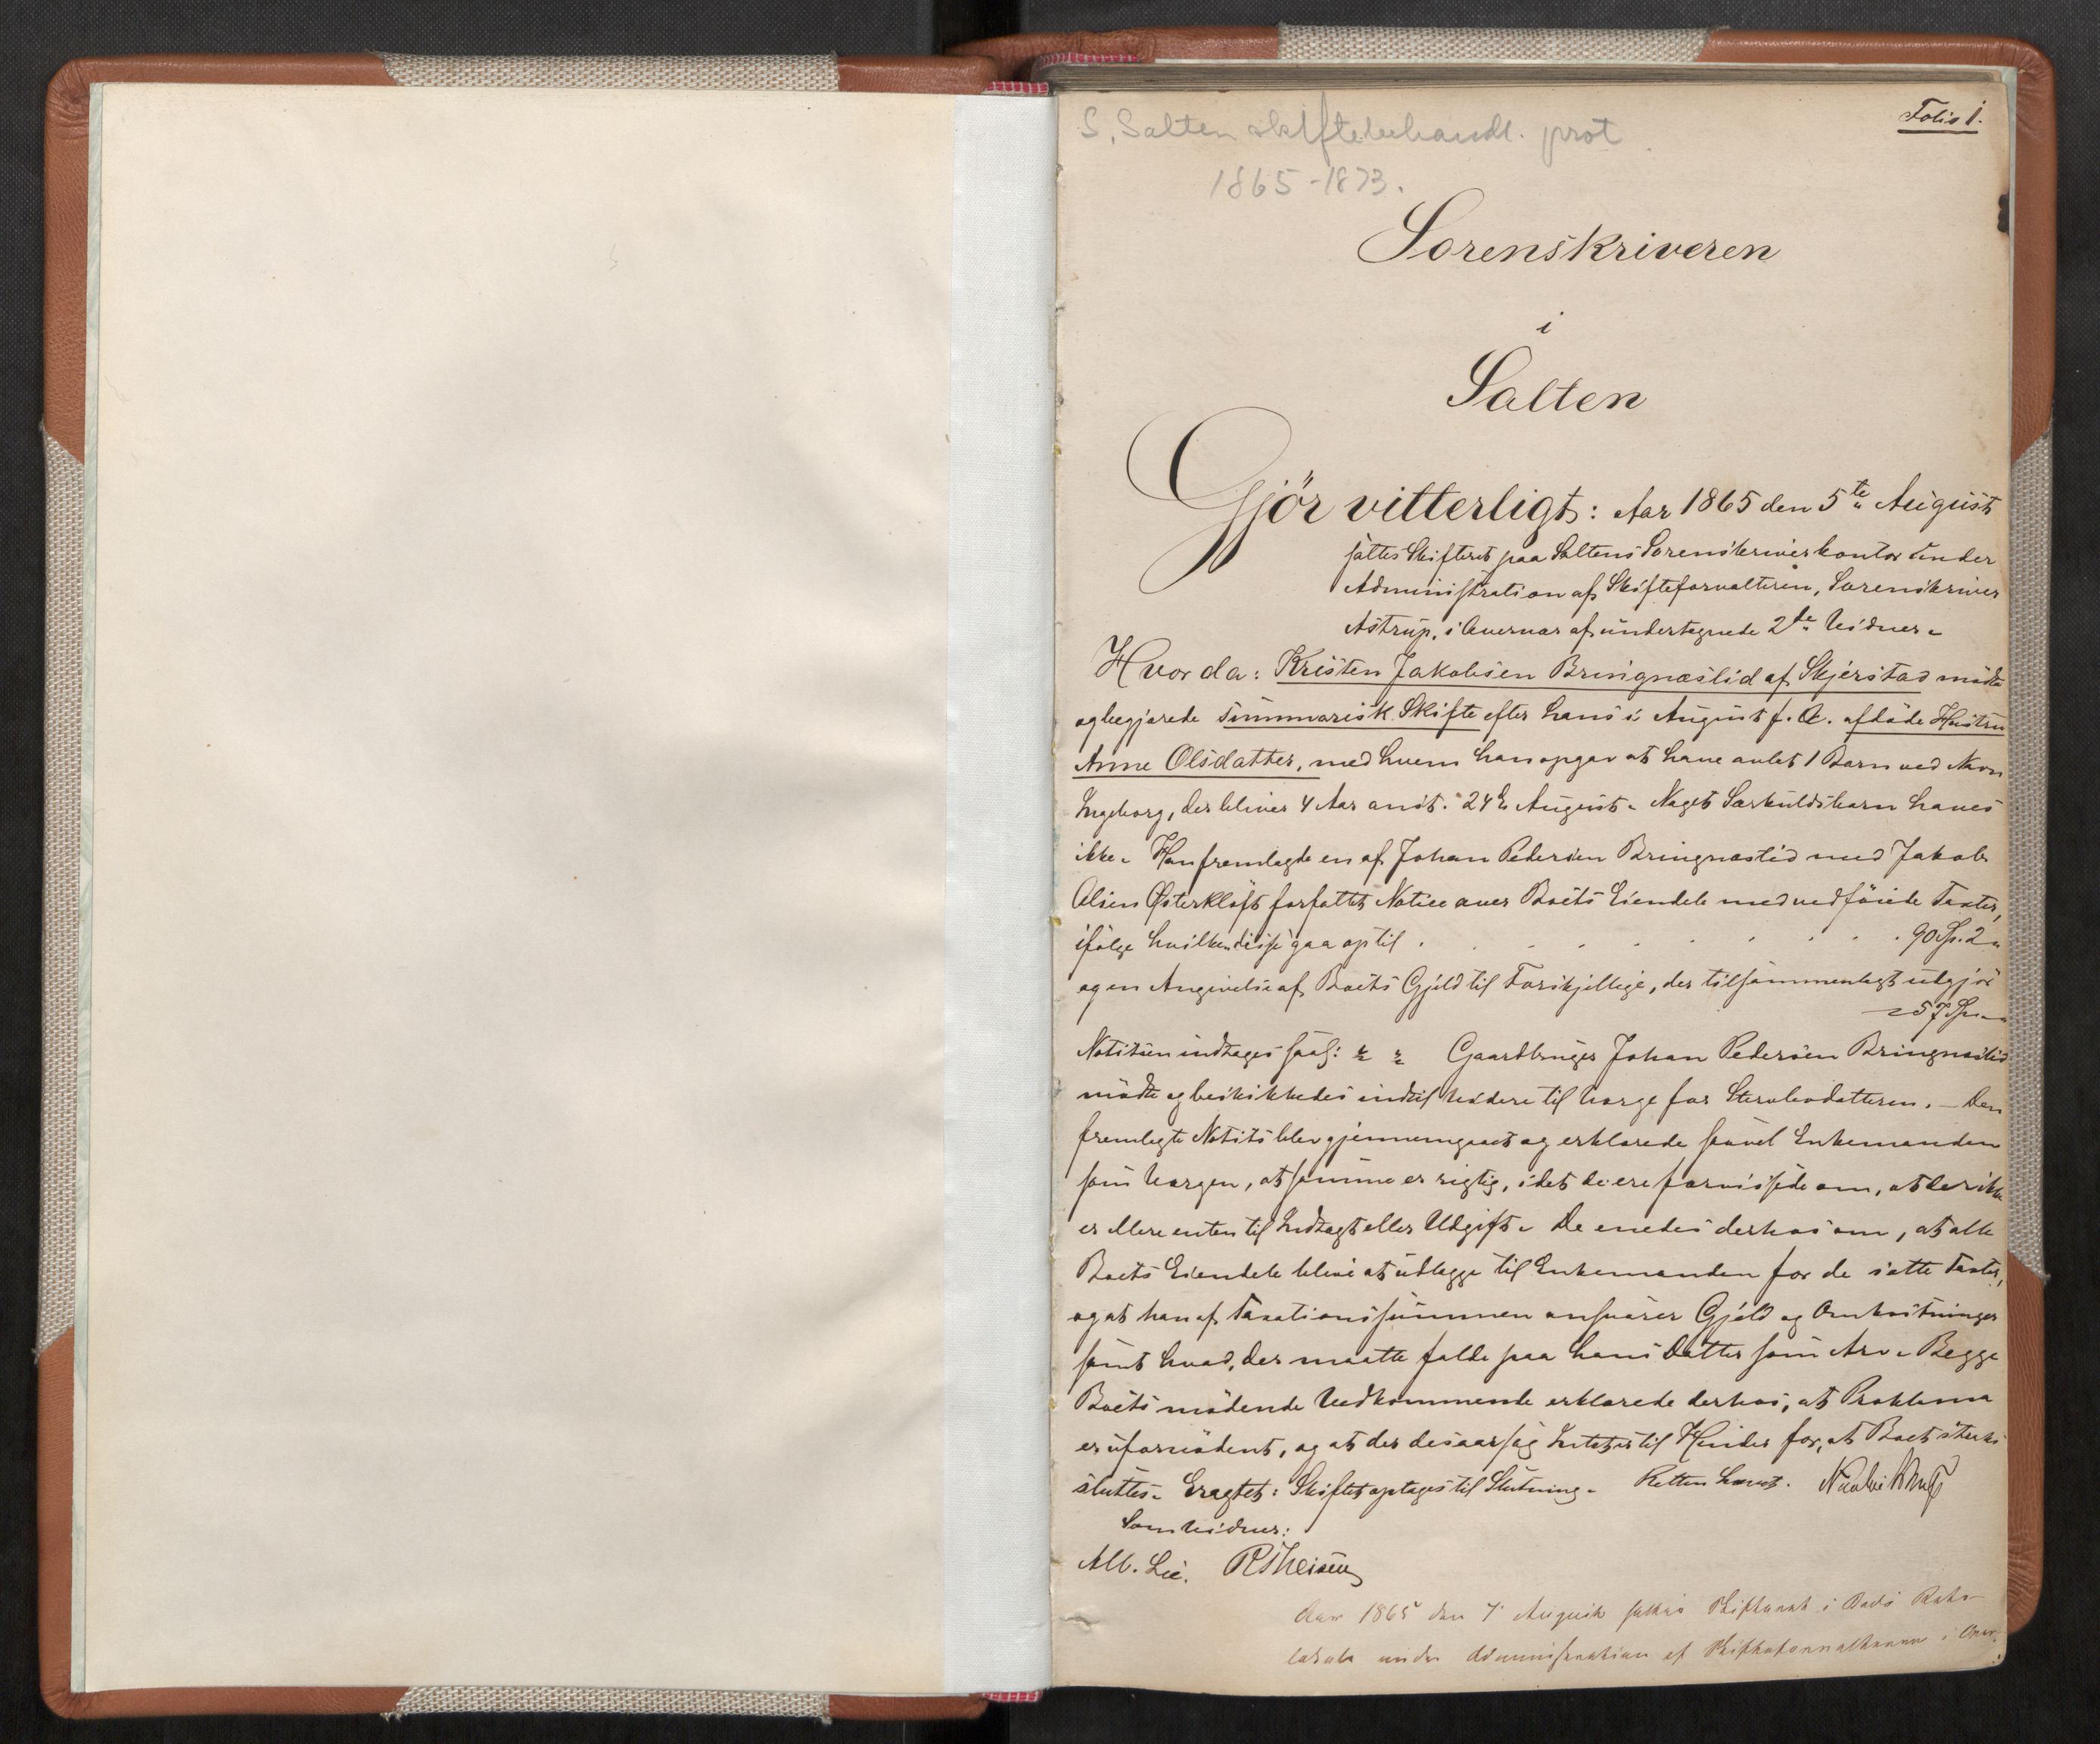 Folio 1.
S. Salten skiftebehandl. prot
1865-1873.
Sorenskriveren
i
Salten
Gjör vitterligt: Aar 1865 den 5te August
sattes Skifteret paa Saltens Sorenskriverkontor under
Administration af Skifteforvalteren, Sorenskriver
Astrup, i Overvær af undertegnede 2de Vidner.
Hvor da: Kristen Jakobsen Bringnæslid af Skjerstad mødte
og begjærede summarisk Skifte efter hans i August f. A. afdøde Hustru
Anne Olsdatter, med hvem han opgav at have avlet 1 Barn ved Navn
Ingeborg, der bliver 4 Aar anst. 24de August. Noget Særkuldsbarn haves
ikke. Han fremlagde en af Johan Pedersen Bringnæslid med Jakob
Olsen Østerkløft forfattet Notice over Boets Eiendele med vedføiede Taxter,
ifølge hvilken disse gaa op til . . . . . . . . 90 Sp. 2
og en Angivelse af Boets Gjeld til Forskjellige, der tilsammenlagt udgjør
57 Sp.
Notitsen indtages saal: Gaardbruger Johan Pedersen Bringnæslid
mødte og beskikkedes indtil Videre til Værge for Stervbodatteren. – Den
fremlagte Notits blev gjennemgaaet og erklærede saavel Enkemanden
som Værgen, at samme er rigtig, idet de ere forvissede om, at der ikke
er Mere enten til Indtægt eller Udgift. De enedes derhos om, at alle
Boets Eiendele blive at udlægge til Enkemanden for de satte Taxter,
og at han af Taxationssummen ansvarer Gjeld og Omkostninger
samt hvad, der maatte falde paa hans Datter som Arv. Begge
Boets mødende Vedkommende erklærede derhos, at Proklama
er ufornødent, og at der desaarsag Intet er til Hinder for, at Boet straks
sluttes. Eragtet: Skiftet optages til Slutning. Retten hævet.
Som Vidner:
Alb. Lie.
Aar 1865 den 7 August sattes Skifteret i Bodø Raad-
lokale under Administration af Skifteforvalteren i Over-